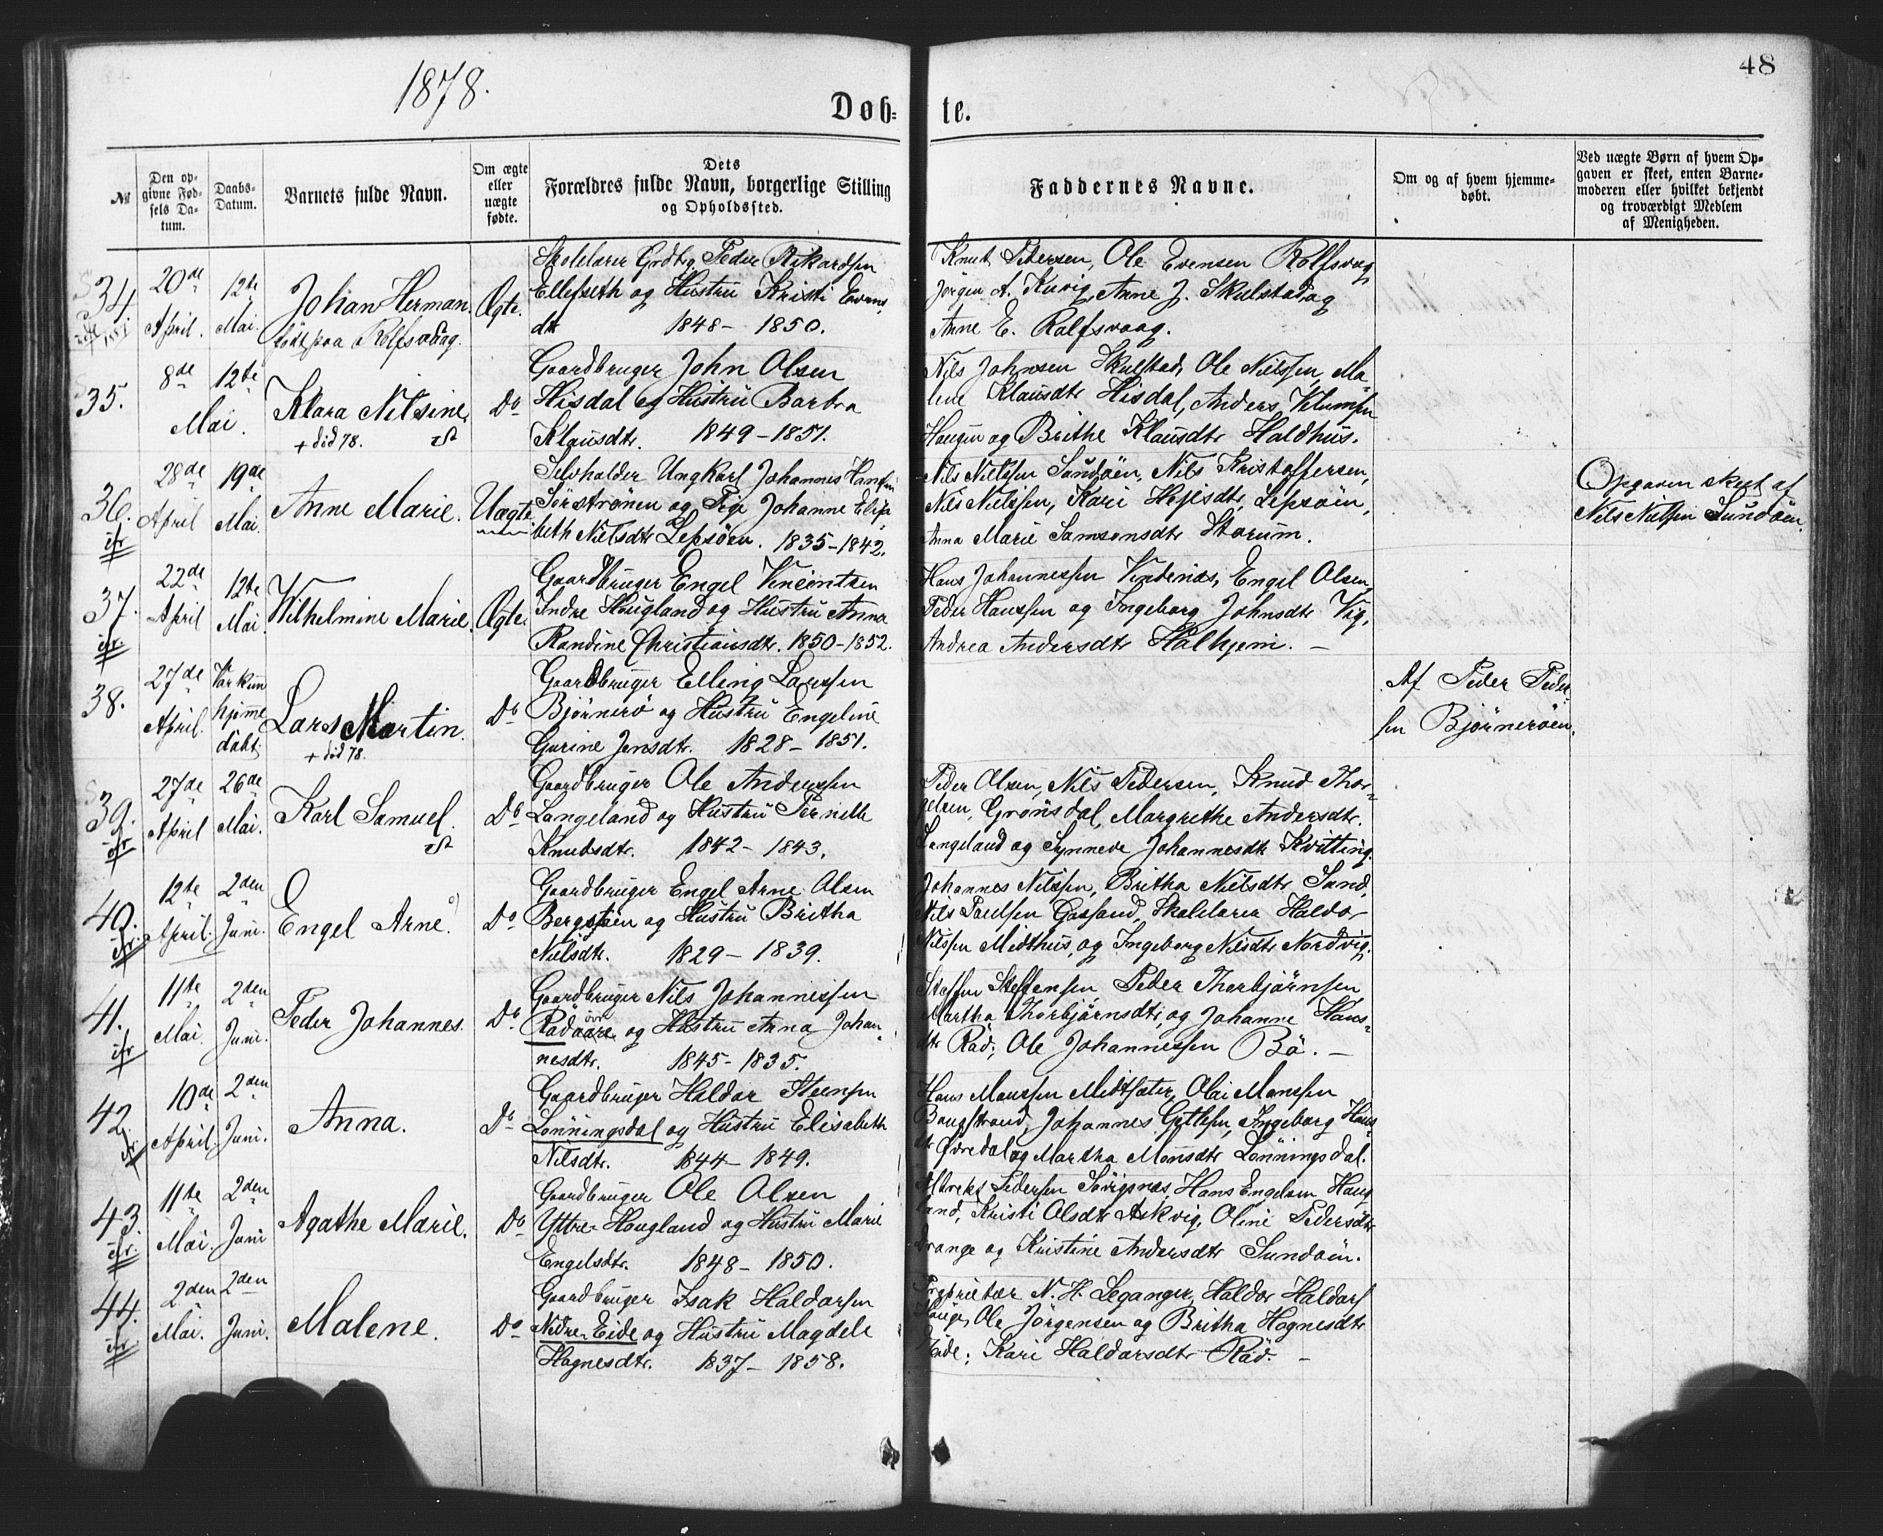 1878.
48
Døb=
te.
№
Den op-
givne Fød-
sels Da-
tum.
Daabs-
Datum.
Barnets fulde Navn.
Om ægte
eller
uægte
fødte.
Dets
Forældres fulde Navn, borgerlige Stilling
og Opholdssted.
Faddernes Navne.
Om og af hvem hjemme-
døbt.
Ved uægte Børn af hvem Op-
gaven er skeet, enten Barne-
moderen eller hvilket bekjendt
og troværdigt Medlem
af Menigheden.
34
20de April.
12te Mai.
Johan Herman.
født paa Rolfsvaag.
Ægte.
Skolelærer Grdbg. Peder Rikardsen
Ellefseth og Hustru Kristi Evens
dt 1848 - 1850.
Knut Petersen, Ole Evensen Rolfsvaag
Jørgen A. Kuvig, Anne J. Skulstad og
Anne E. Rolfsvaag.
35.
8de Mai.
12te
Klara Nilsine
+ død 78.
Do
Gaardbruger John Olsen
Hisdal og Hustru Barbra
Klausdtr. 1849 - 1851.
Nils Johnsen Skulstad, Ole Nilssen, Ma-
lene Klausdtr Hisdal, Anders Klemsen
Haugen og Brithe Klausdtr Haldhus.
36.
28de April
19de Mai.
Anne Marie.
Uægte
Selvholder Ungkarl Johannes Hansen
Sørstrønen og Pige Johanne Elisa
beth Nielsdtr Lepsøen. 1835 - 1842.
Nils Nielssen Sundøen, Nils Kristoffersen,
Nils Nielssen, Kari Lepsøen,
Anna Marie Samsonsdtr Skorum.
Opgaven skeet af
Nils Nielssen Sundøen.
37.
22de April
12te Mai.
Wilhelmine Marie.
Ægte.
Gaardbruger Engel Vincentsen
Indre Hougland og Hustru Anna
Randine Christiansdtr. 1850 - 1852.
Hans Johannessen Vindenes, Engel Olsen,
Peder Hanssen og Ingeborg Johnsdtr Vig,
Andrea Andersdtr Halhjem. —
38.
27de April.
hjeme
døbt
Lars Martin.
+ død 78.
Do
Gaardbruger Elling Larssen
Bjørnerø og Hustru Engeline
Gurine Jensdtr. 1828 - 1851.
Af Peder Peder
sen Bjørnerøen.
39.
27de April
26de Mai.
Karl Samuel.
Do
Gaardbruger Ole Anderssen
Langeland og Hustru Pernille
Knutsdtr. 1842 - 1843.
Peder Olsen, Nils Pedersen, Knud Thor-
gelsen, Grønsdal, Margrethe Andersdtr.
Langeland og Synneve Johannesdtr Kvitting.
40.
12te April.
2den Juni.
Engel Arne.
Do
Gaardbruger Engel Arne Olsen
Bergsøen og Hustru Britha
Nielsdtr. 1829 - 1839.
Johannes Nilssen, Britha Nielsdtr Sand,
Nils Poulsen Gaasand, Skolelærer Haldor
Nilssen Midthus, og Ingeborg Nilsdtr Nordvig.
41.
11te Mai.
2den Juni.
Peder Johannes.
Do
Gaardbruger Nils Johannessen
Rad øvre og Hustru Anna Johan-
nesdtr. 1845 - 1835.
Steffen Steffensen Peder Thorbjørnsen
Martha Thorbjørnsdtr, og Johanne Hans-
dtr Rad; Ole Johannessen Bø. —
42.
10de April.
2den Juni.
Anna.
Do
Gaardbruger Haldor Steensen
Lønningsdal og Hustru Elisabeth
Nilsdtr. 1844 - 1849.
Hans Monssen Midtsæter, Olai Monssen
Bougstrand, Johannes Ingeborg Hans-
dtr Øvredal og Martha Monsdtr Lønningsdal.
43.
11te Mai.
2den Juni
Agathe Marie.
Do
Gaardbruger Ole Olsen
Yttre Hougland og Hustru Marie
Engelsdtr. 1848 - 1850.
Pedersen Søvigsnæs, Hans Engelsen Houg
land, Kristi Olsdtr Askvig, Oline Pedersdtr
Drange og Kristine Andersdtr Sundøen.
44.
2den Mai.
2den Juni.
Malene.
Do
Gaardbruger Isak Haldorsen
Nedre Eide og Hustru Magdele
Hagnesdtr. 1837 - 1858.
Proprietær N. H. Leganger, Haldor Haldors
Hauge, Ole Jørgensen og Britha Hagnesdtr
Eide; Kari Haldorsdtr Rad. —